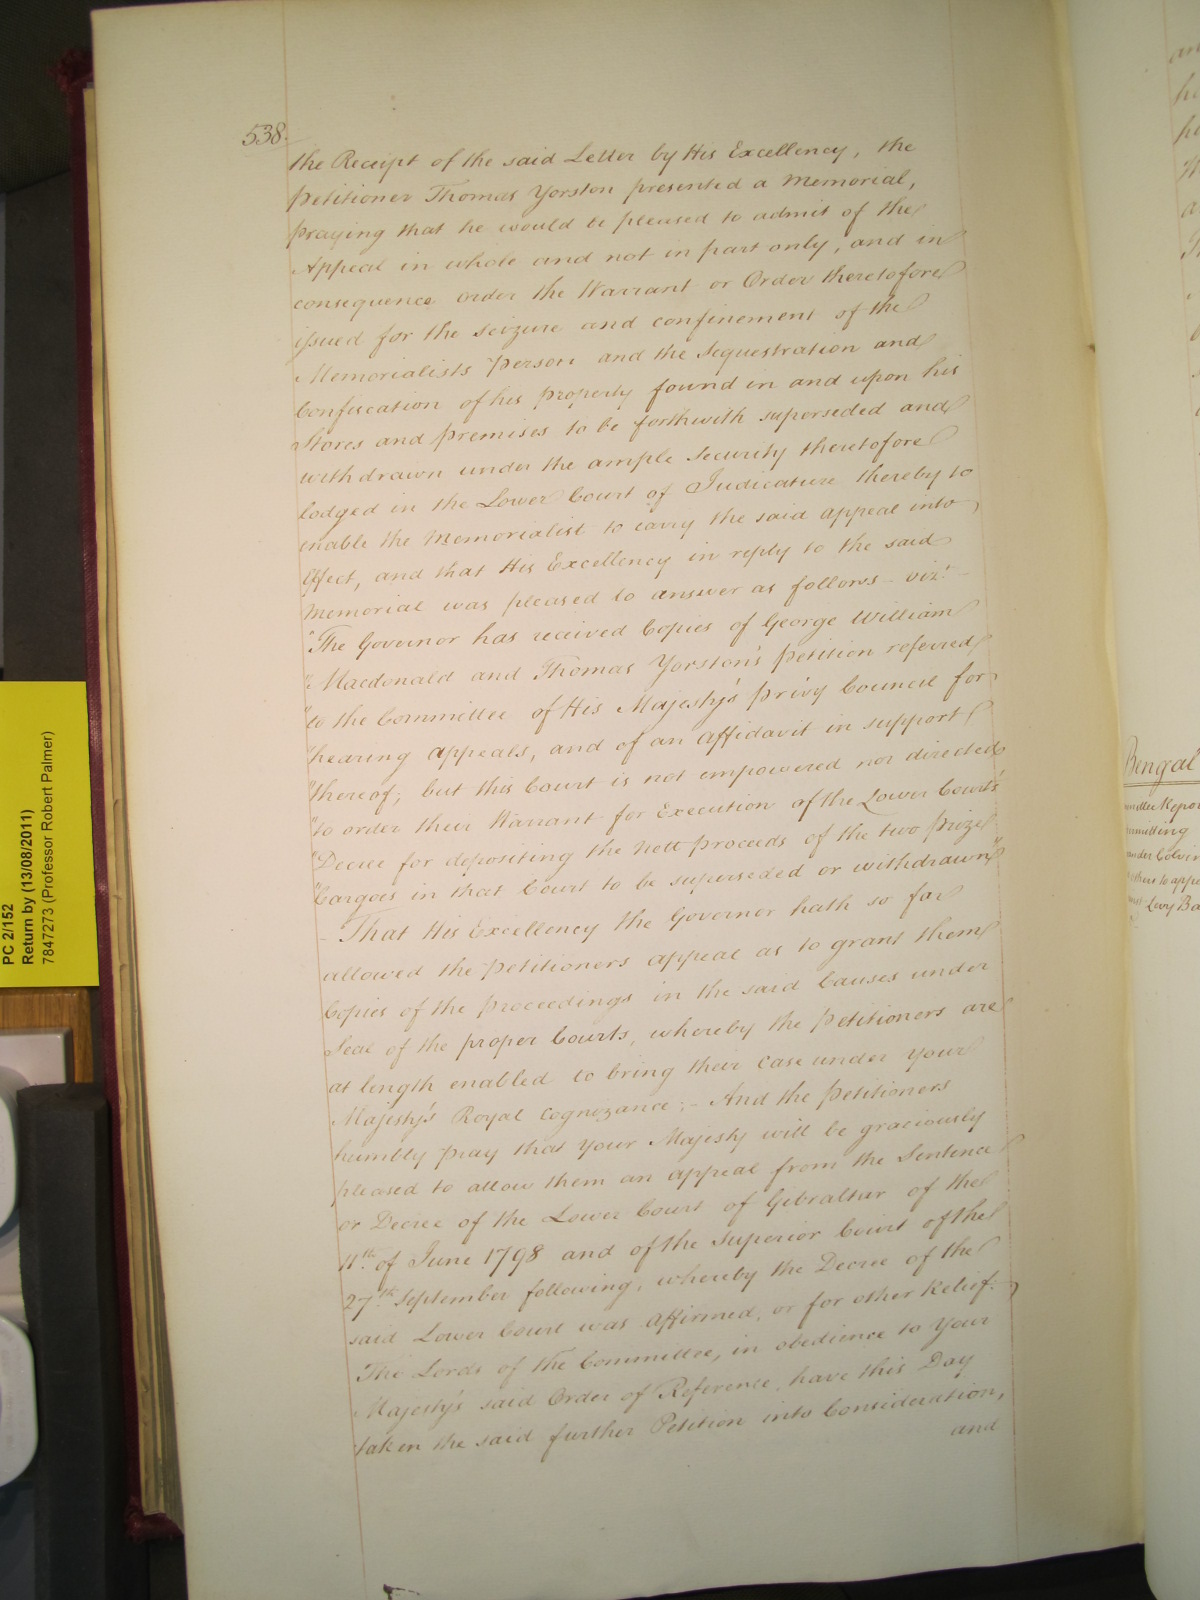 538.
the Receipt of the said Letter by His Excellency, the
Petitioner Thomas Yorston presented a Memorial,
praying that he would be pleased to admit of the
Appeal in whole and not in part only, and in
consequence order the Warrant or Order theretofore
issued for the seizure and confinement of the
Memorialists Person and the Sequestration and
Confiscation of his property found in and upon his
Stores and premises to be forthwith superseded and
withdrawn under the ample Security theretofore
lodged in the Lower Court of Judicature thereby to
enable the Memorialist to carry the said appeal into
Effect, and that His Excellency in reply to the said
Memorial was pleased to answer as follows – vizt. –
"The Governor has received Copies of George William
"Macdonald and Thomas Yorston's Petition referred
"to the Committee of His Majesty's Privy Council for
"hearing appeals, and of an Affidavit in support
"thereof; but this Court is not empowered nor directed
"to order their Warrant for Execution of the Lower Court's
"Decree for depositing the nett proceeds of the two prize
"Cargoes in that Court to be superseded or withdrawn"
– That His Excellency the Governor hath so far
allowed the Petitioners appeal as to grant them
Copies of the Proceedings in the said Causes under
Seal of the proper Courts, whereby the Petitioners are
at length enabled to bring their case under your
Majesty's Royal Cognizance; – And the Petitioners
humbly pray that Your Majesty will be graciously
pleased to allow them an appeal from the Sentence
or Decree of the Lower Court of Gibraltar of the
11th. of June 1798 and of the Superior Court of the
27th. September following, whereby the Decree of the
said Lower Court was affirmed, or for other Relief:
The Lords of the Committee, in obedience to Your
Majesty's said Order of Reference, have this Day
taken the said further Petition into Consideration,
and
PC 2/152
Return by (13/08/2011)
7847273 (Professor Robert Palmer)
Bengal